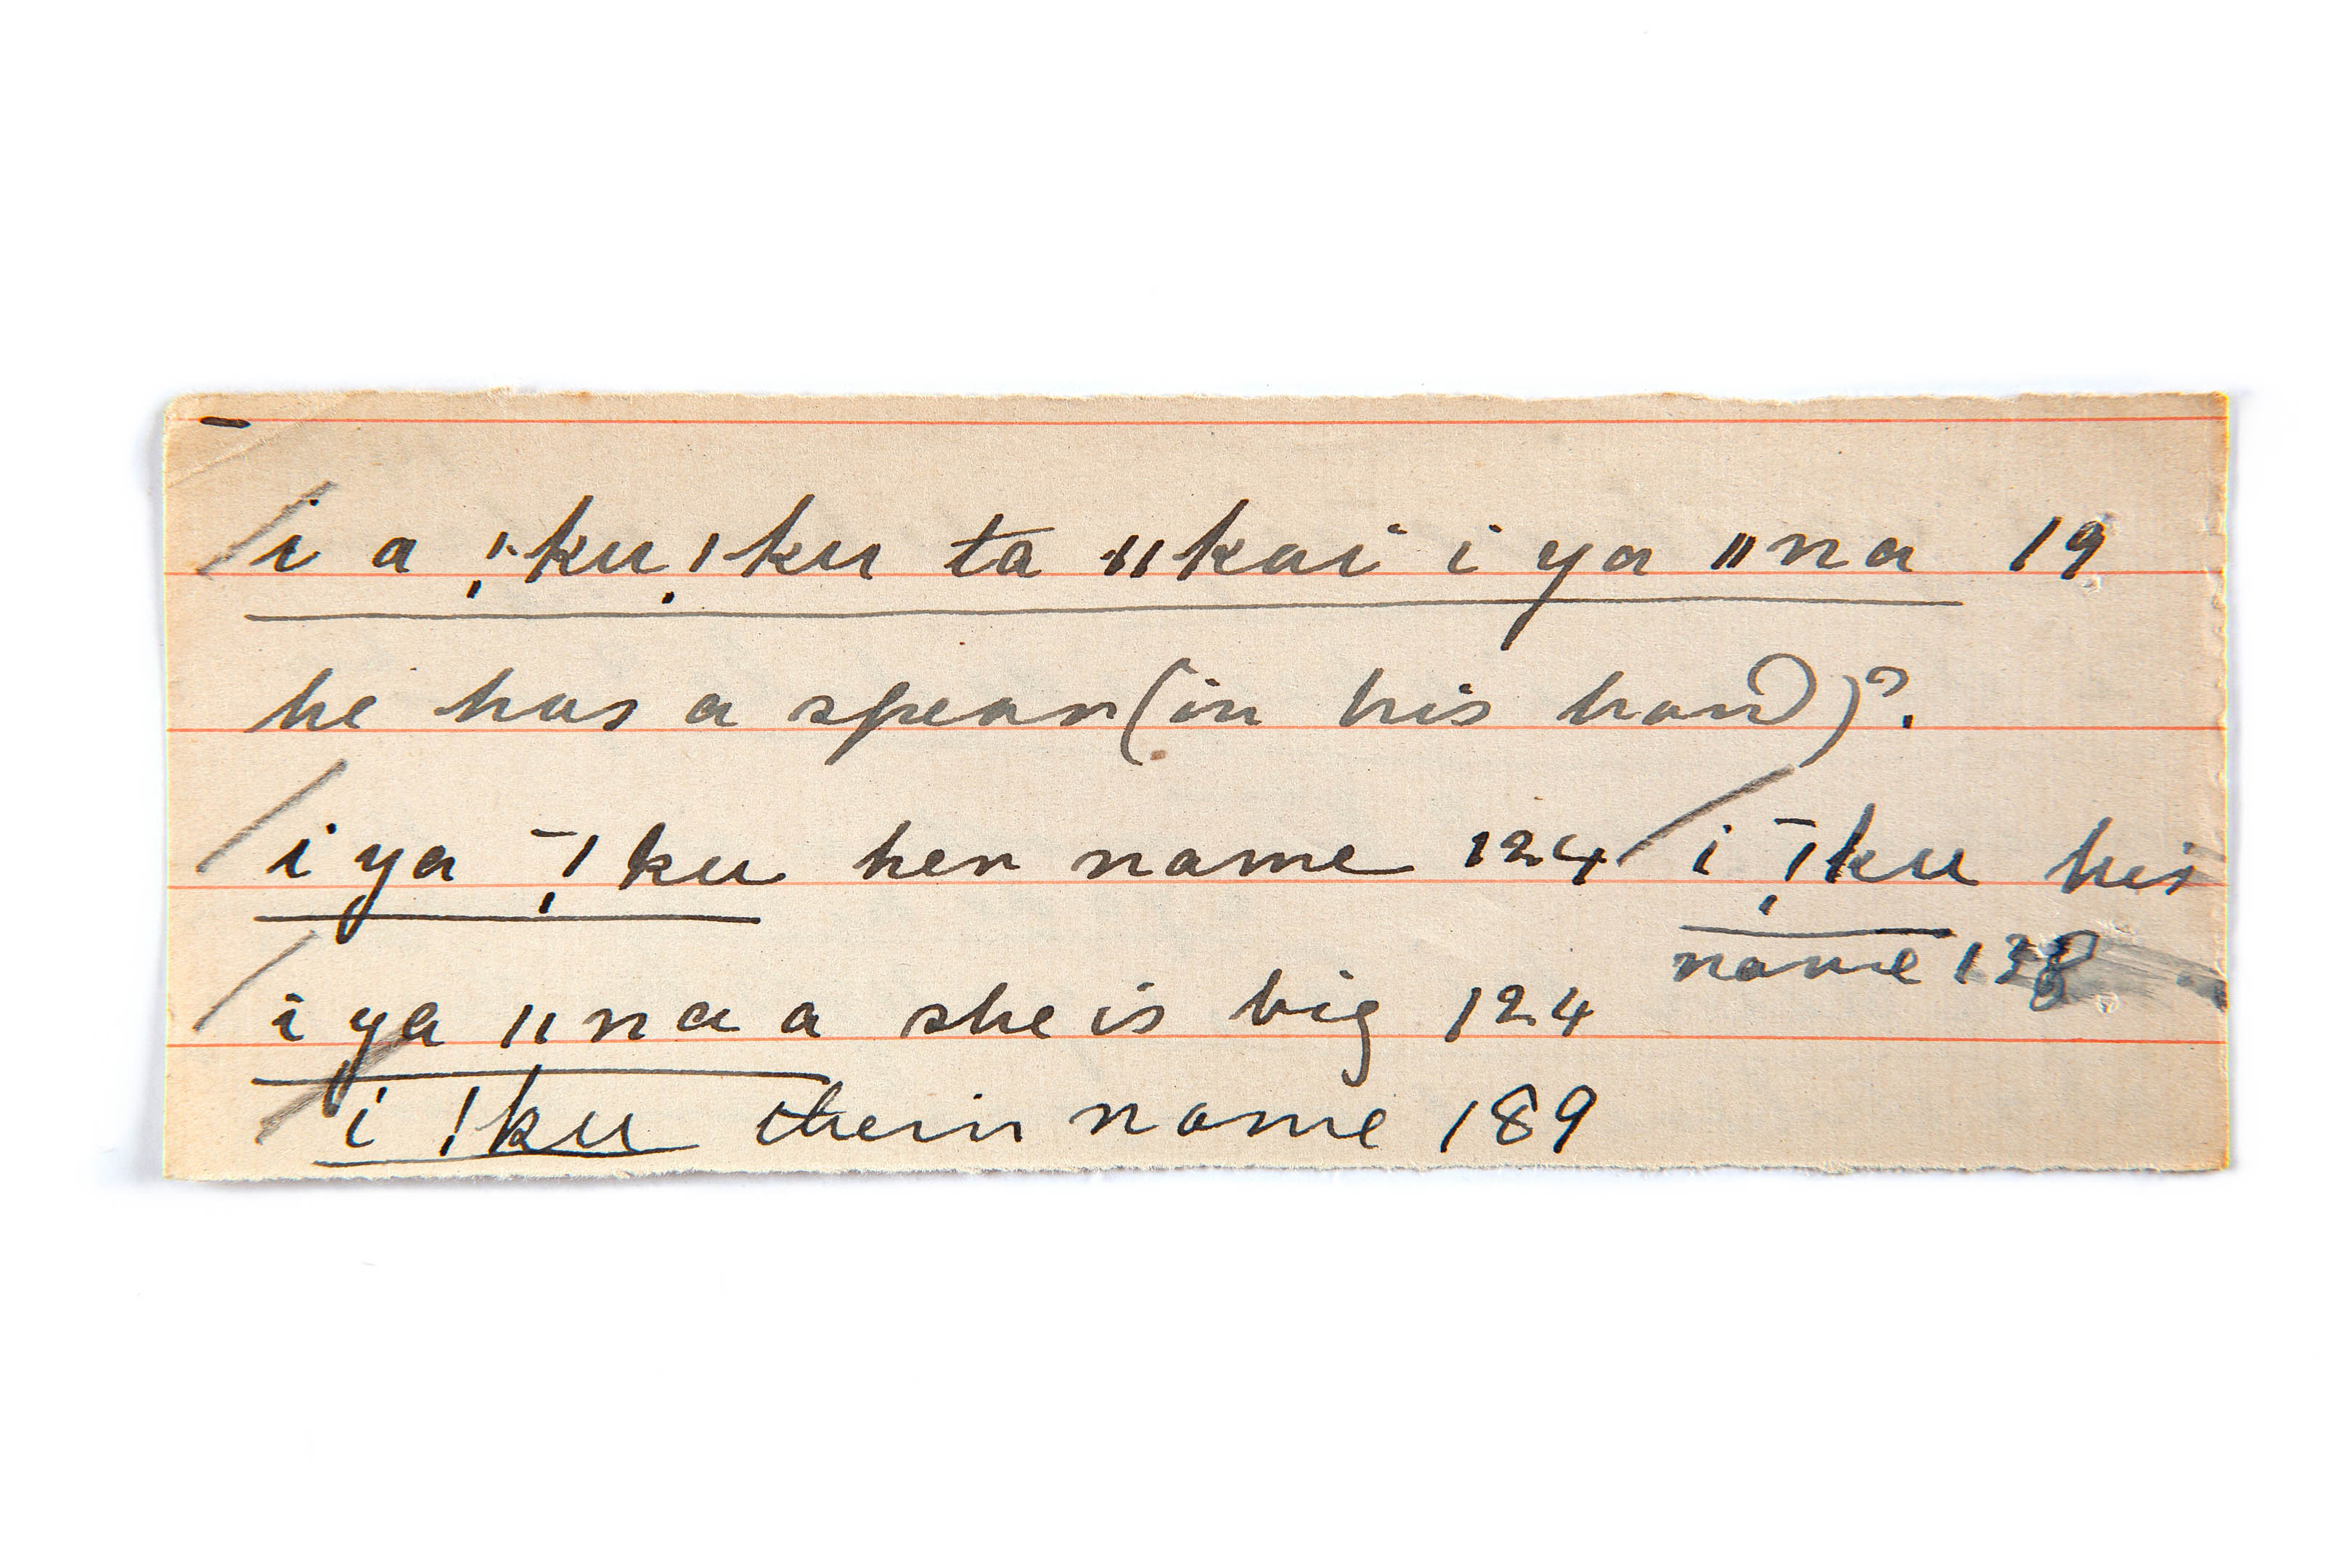 i a !ku !ku ta ǁkai i ya ǁna 19
he has a spear (in his hand)?
i ya !ku her name 124 i !ku his
name 138
i ya ǁna a she is big 124
i !ku their name 189